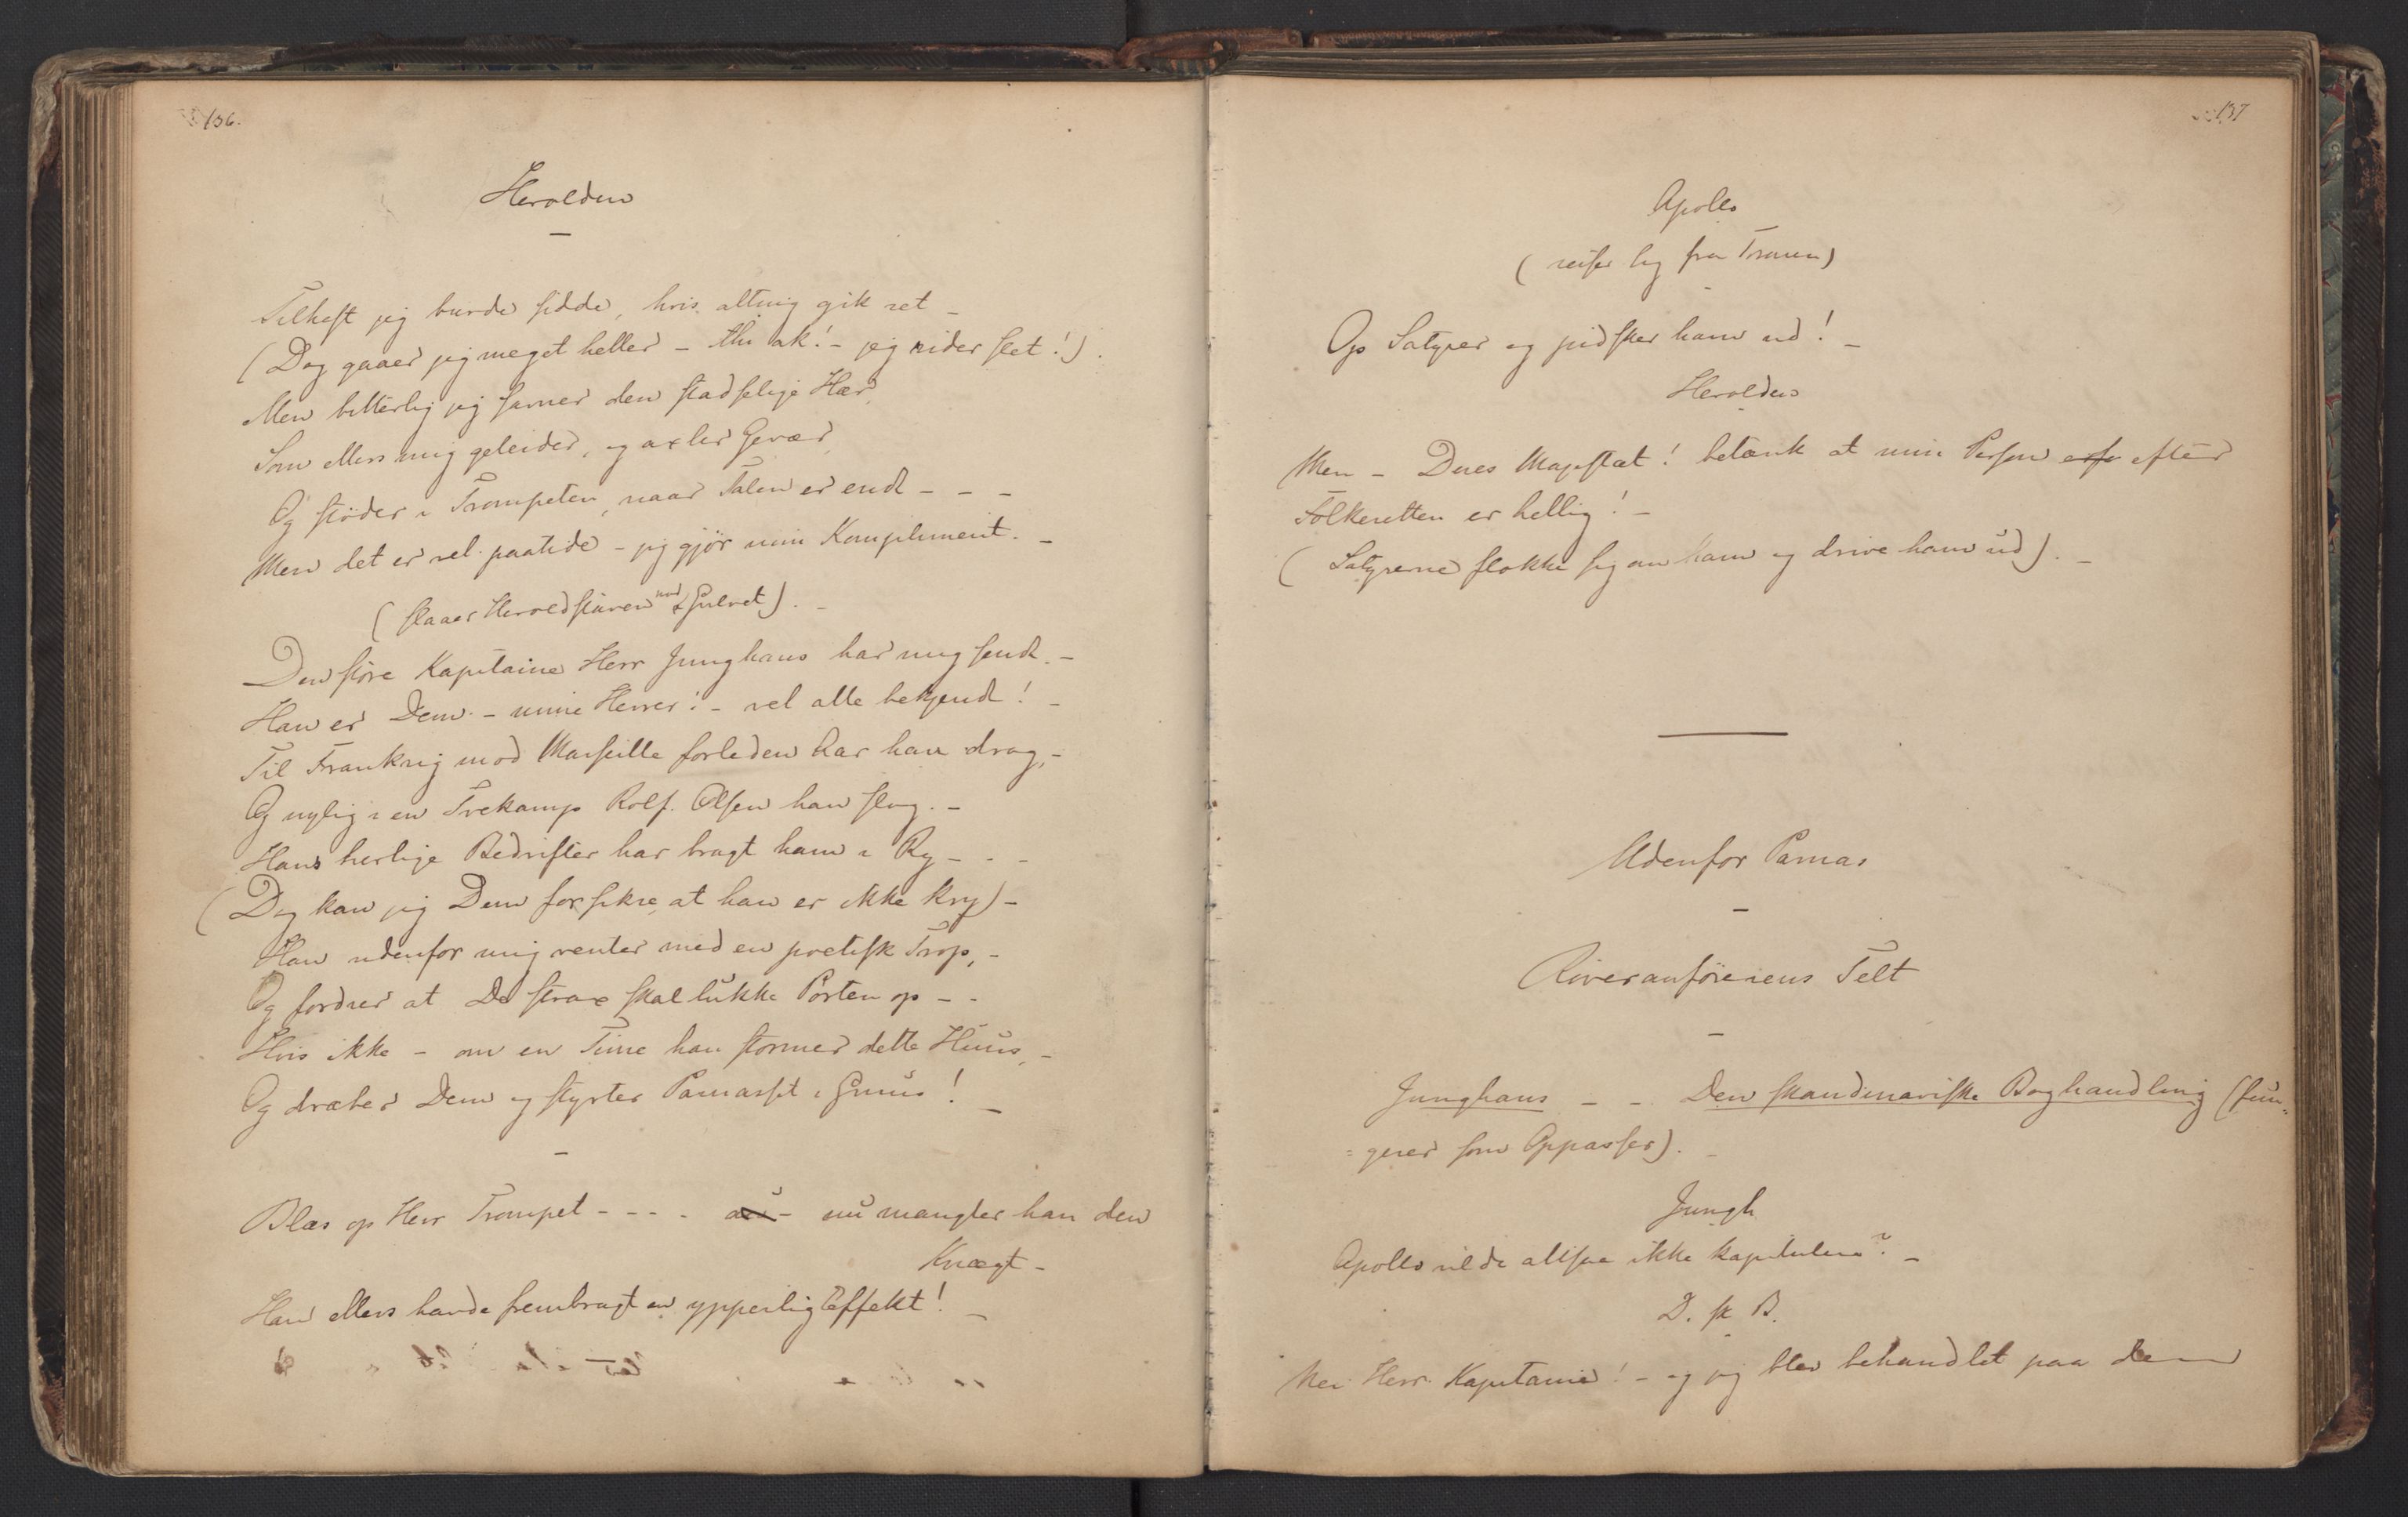 136.
Herolden
—
Tilhest jeg burde sidde, hvis alting gik ret –
(Dog gaaer jeg meget heller – thi ak! – jeg rider slet!).
Men bitterlig jeg savner den stadselige Hær,
Som ellers mig geleider, og axler Gevær,
Og støder i Trompeten, naar Talen er endt – – –
Men det er vel paatide – jeg gjör min Kompliment. –
(slaaer Heroldstaven mod Gulvet). –
Den störe Kapitaine Herr Junghans har mig sendt. –
Han er Dem – mine Herrer! – vel alle bekjendt! –
Til Frankrig mod Marseille forleden har han drag, –
Og nylig i en Tvekamp Rolf Olsen han slog. –
Hans herlige Bedrifter har bragt ham i Ry – – –
(Dog kan jeg Dem forsikre, at han er ikke kry) –
Han udenfor mig venter med en poetisk Trop, –
Og fordrer at De strax skal lukke Porten op – –
Hvis ikke – om en Time han stormer dette Huus, –
Og dræber Dem og styrter Parnasset i Gruus! –
—
Blæs op Herr Trompet – – – – nu mangler han den
Knægt –
Han ellers havde frembragt en ypperlig Effekt! –
137
Apollo
(reiser sig fra Tronen)
Op Satyrer og pidsker ham ud! –
Herolden
Men – Deres Majestæt! betænk at min Person efter
Folkeretten er hellig! –
(Satyrerne flokke sig om ham og drive ham ud). –
Udenfor Parnas
—
Röveranförerens Telt
—
Junghans – – Den skandinaviske Boghandling (fun-
=gerer som Oppasser). –
Jungh
Apollo vilde altsaa ikke kapitulere? –
D. sk B.
Nei Herr Kapitaine! – og jeg blev behandlet paa den